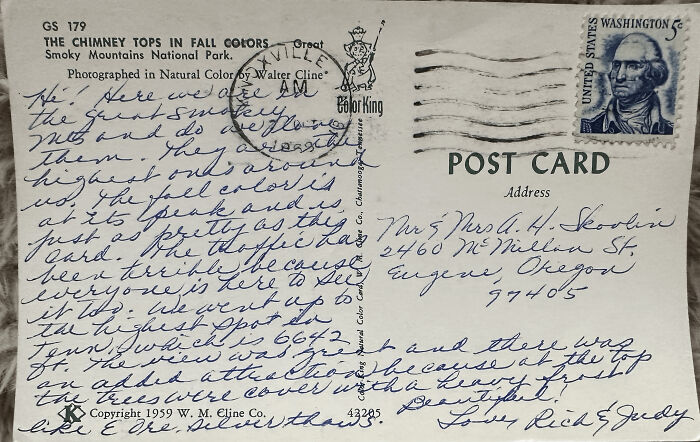 GS 179
THE CHIMNEY TOPS IN FALL COLORS Great
Smoky Mountains National Park.
Photographed in Natural Color by Walter Cline
Hi, Here we are in
the great Smokey
Mts and do we love
them. They are the
highest ones around
us. The fall color is
at its peak and is
just as pretty as this
card. The traffic has
been terrible because
everyone is here to see
it too. We went up to
the highest spot in
Tenn, which is 6642
ft. The view was great and there was
an added attraction because at the top
the trees were cover with a heavy frost
like E. Ore. silver thaws. Beautiful!
Love, Rich & Judy
K Copyright 1959 W. M. Cline Co. 42205
XVILLE
AM
Color King
Color King Natural Color Card, W. M. Cline Co., Chattanooga, Tennessee
UNITED STATES
WASHINGTON 5c
POST CARD
Address
Mr & Mrs A. H. Skoolin
2460 McMillan St.
Eugene, Oregon
97405